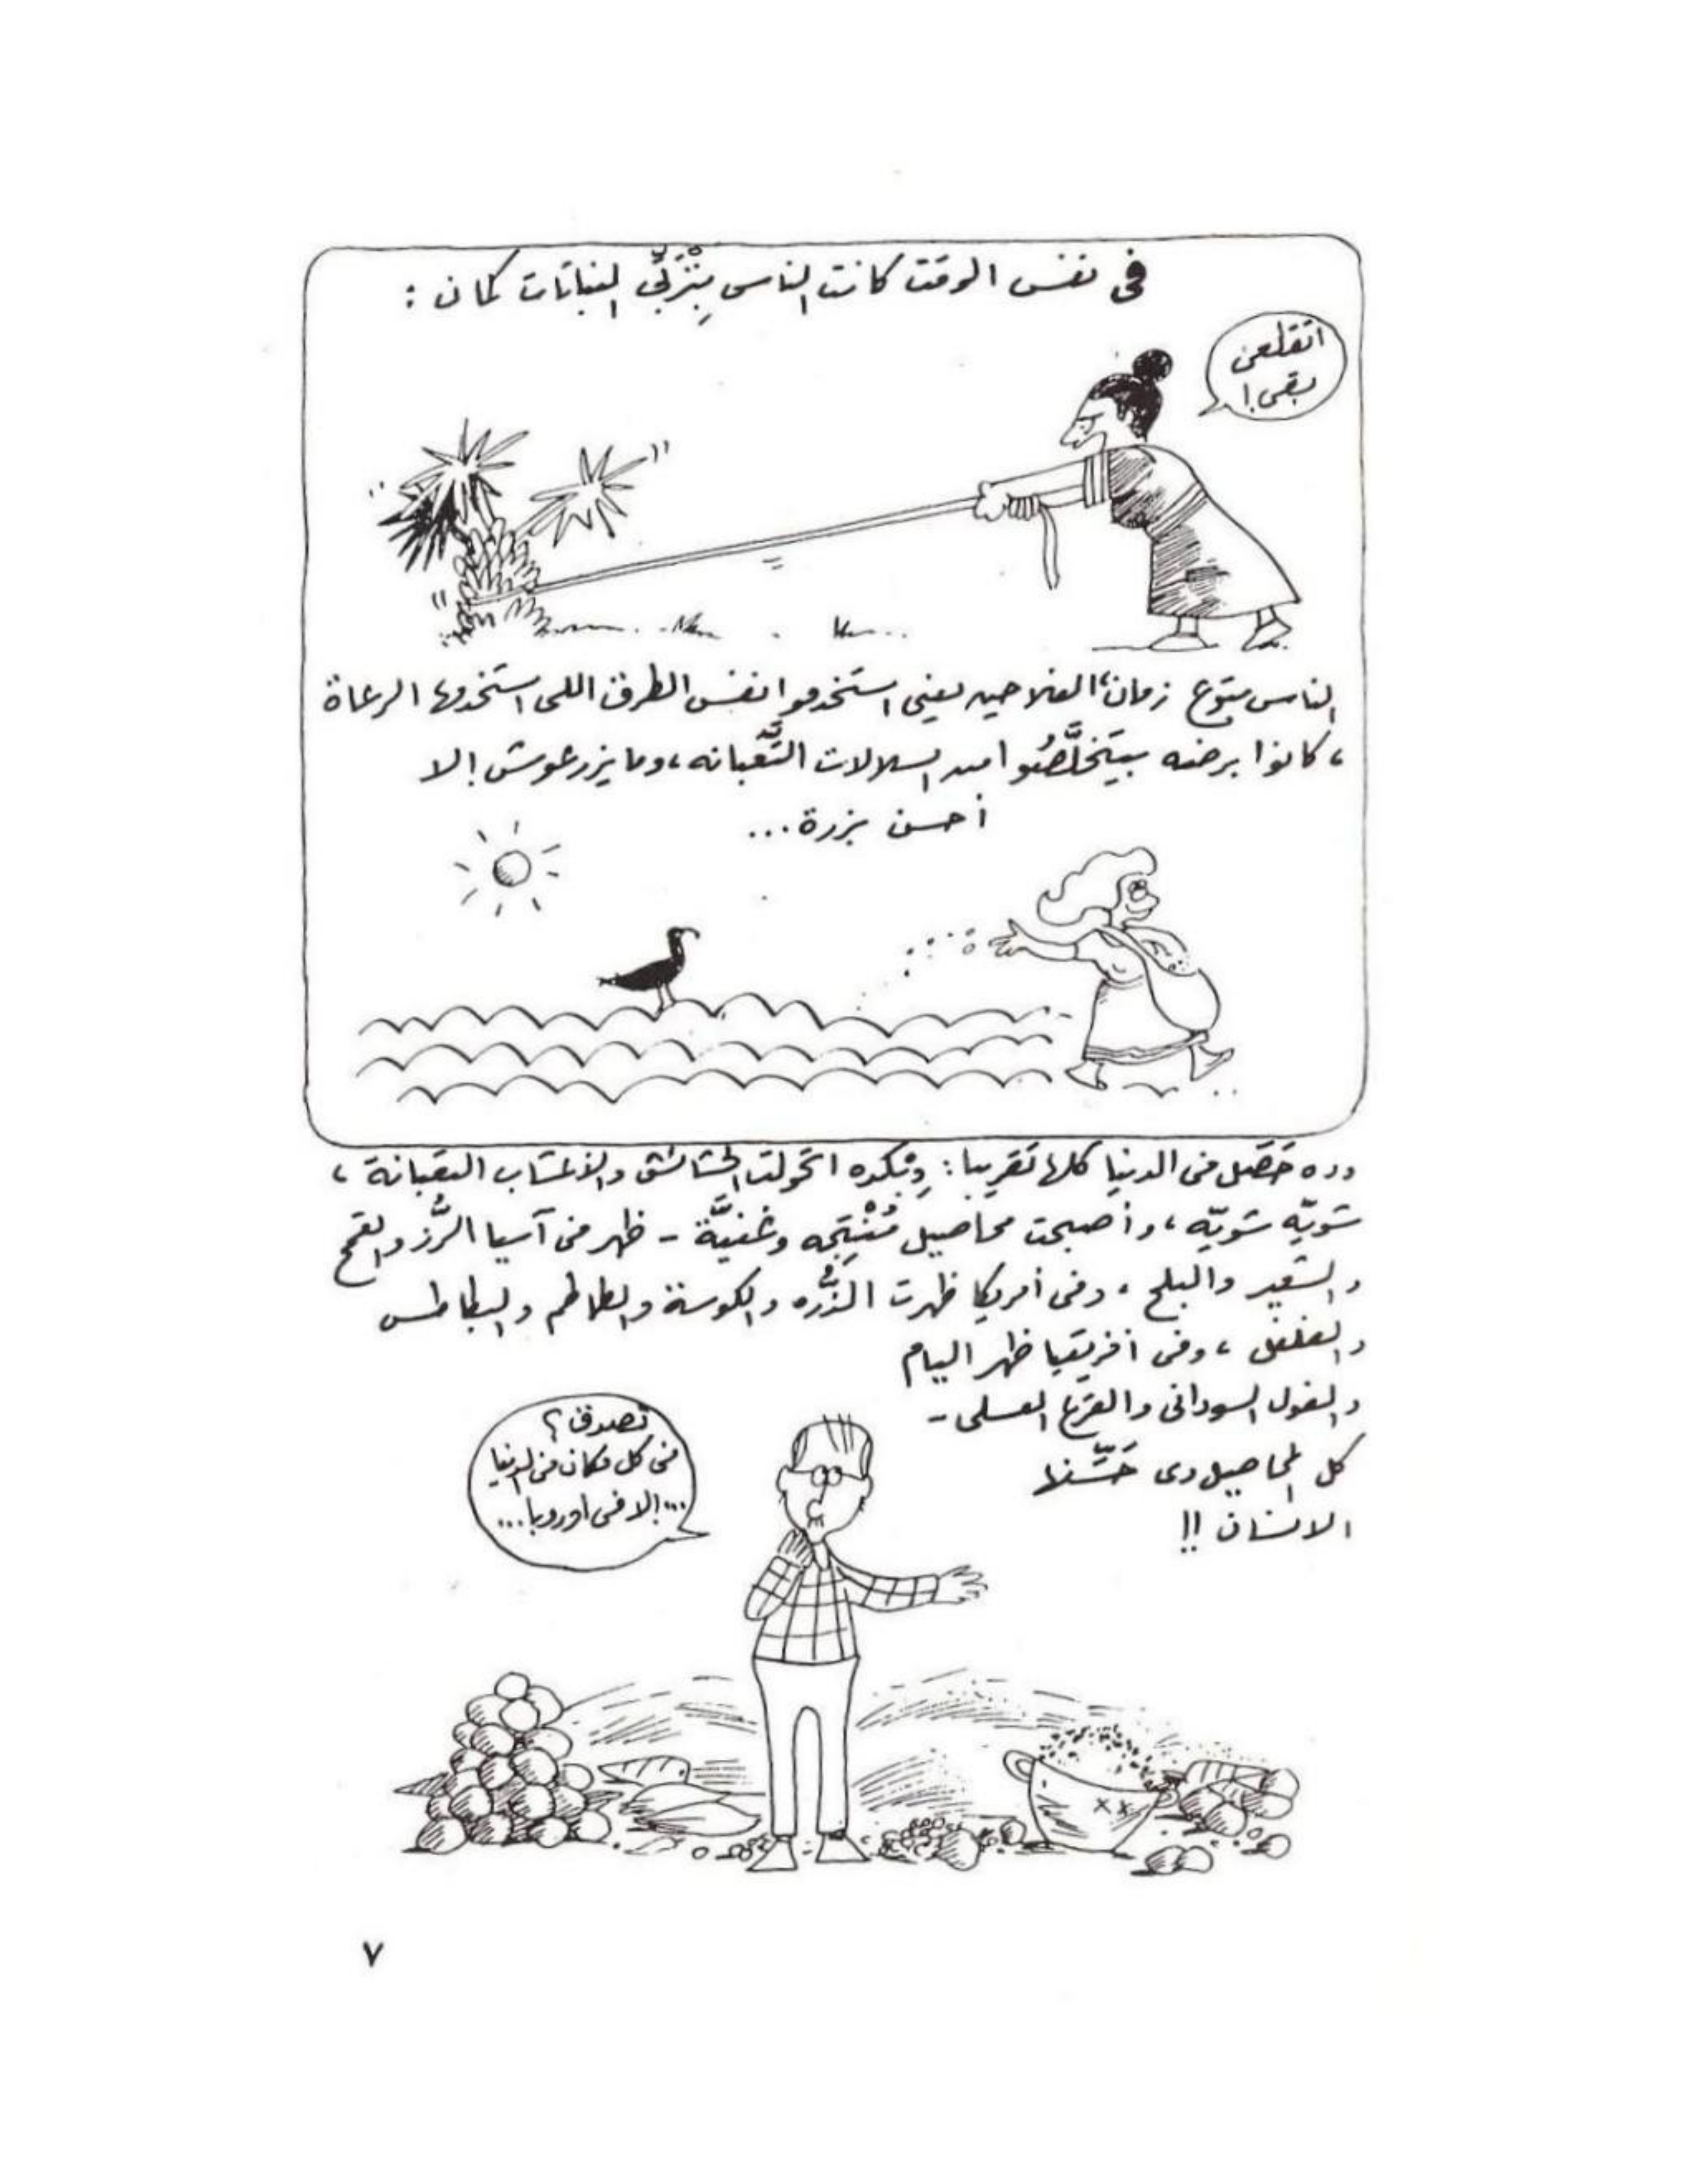 فى نفس الوقت كانت الناس بِتْرَبِّى النباتات كمان :
اتقلعى
بقى !
الناس بتوع زمان، الفلاحين يعنى استخدموا نفس الطرق اللى استخدمها الرعاة
، كانوا برضه بيتخلَّصُوا من السلالات التَّعْبانه ، وما يزرعوش إلا
أحسن بزرة ...
وده حَصَل فى الدنيا كلها تقريبا : وِبْكده اتحولت الحشائش والأعشاب التعبانة ،
شويّه شويّه ، وأصبحت محاصيل مُنْتِجه وغنيَّة - ظهر فى آسيا الرُّز والقمح
والشعير والبلح ، وفى أمريكا ظهرت الدُّره والكوسة والطماطم والبطاطس
والفلفل ، وفى أفريقيا ظهر اليام
والفول السودانى والقرع العسلى -
كل المحاصيل دى حَسِّنها
الانسان !!
تصدق ؟
فى كل مكان فى الدنيا
... إلا فى أوروبا ...
٧